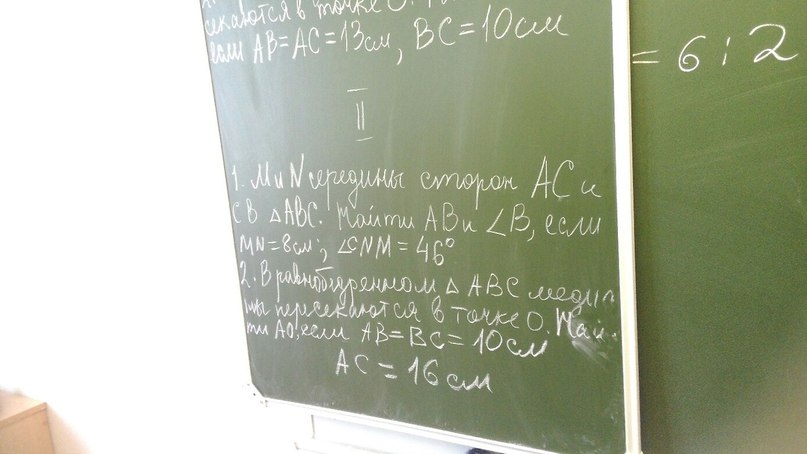 секаются в точке О.
если АВ=АС=13см, ВС=10см
= 6 : 2
II
1. М и N середины сторон АС и
СВ △АВС. Найти АВ и ∠В, если
MN=8см; ∠CNM=46°
2. В равнобедренном △ АВС меди
аны пересекаются в точке О. Най
ти АО, если АВ=ВС=10см
АС=16см